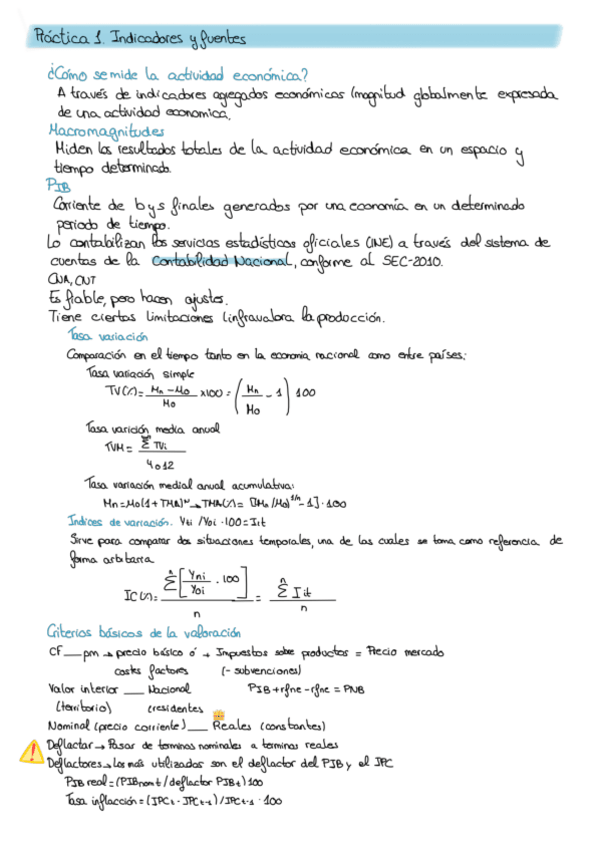 Práctica 1. Indicadores y fuentes
¿Cómo se mide la actividad económica?
A través de indicadores agregados económicos (magnitud globalmente expresada
de una actividad economica.
Macromagnitudes
Miden los resultados totales de la actividad económica en un espacio y
tiempo determinado.
PIB
Corriente de b y s finales generados por una economía en un determinado
periodo de tiempo.
Lo contabilizan los servicios estadísticos oficiales (INE) a través del sistema de
cuentas de la Contabilidad Nacional, conforme al SEC-2010.
CNA, CNT
Es fiable, pero hacen ajustes.
Tiene ciertas limitaciones (infravalora la producción.
Tasa variación
Comparación en el tiempo tanto en la economía nacional como entre países:
Tasa variación simple
TV(%) = (Mn - Mo / Mo) x100 = (Mn / Mo - 1) 100
Tasa varición media anual
TVM = Σ TVi / 4 o 12
Tasa variación medial anual acumulativa:
Mn = Mo(1 + TMA)ⁿ → TMA(%) = [(Mn/Mo)^1/n - 1] · 100
Indices de variación. Yti / Yoi · 100 = Iit
Sirve para comparar dos situaciones temporales, una de las cuales se toma como referencia de
forma arbitaria
IC(%) = Σ [Yni / Yoi · 100] / n = Σ Iit / n
Criterios básicos de la valoración
CF __ pm → precio básico ó → Impuestos sobre productos = Precio mercado
costes factores (- subvenciones)
Valor interior __ Nacional PIB + rfne - rfne = PNB
(territorio) (residentes
Nominal (precio corriente) __ Reales (constantes)
Deflactar → Pasar de terminos nominales a terminos reales
Deflactores → los más utilizados son el deflactor del PIB y el IPC
PIB real = (PIB nom t / deflactor PIB t) 100
Tasa inflacción = (IPCt - IPCt-1) / IPCt-1 · 100